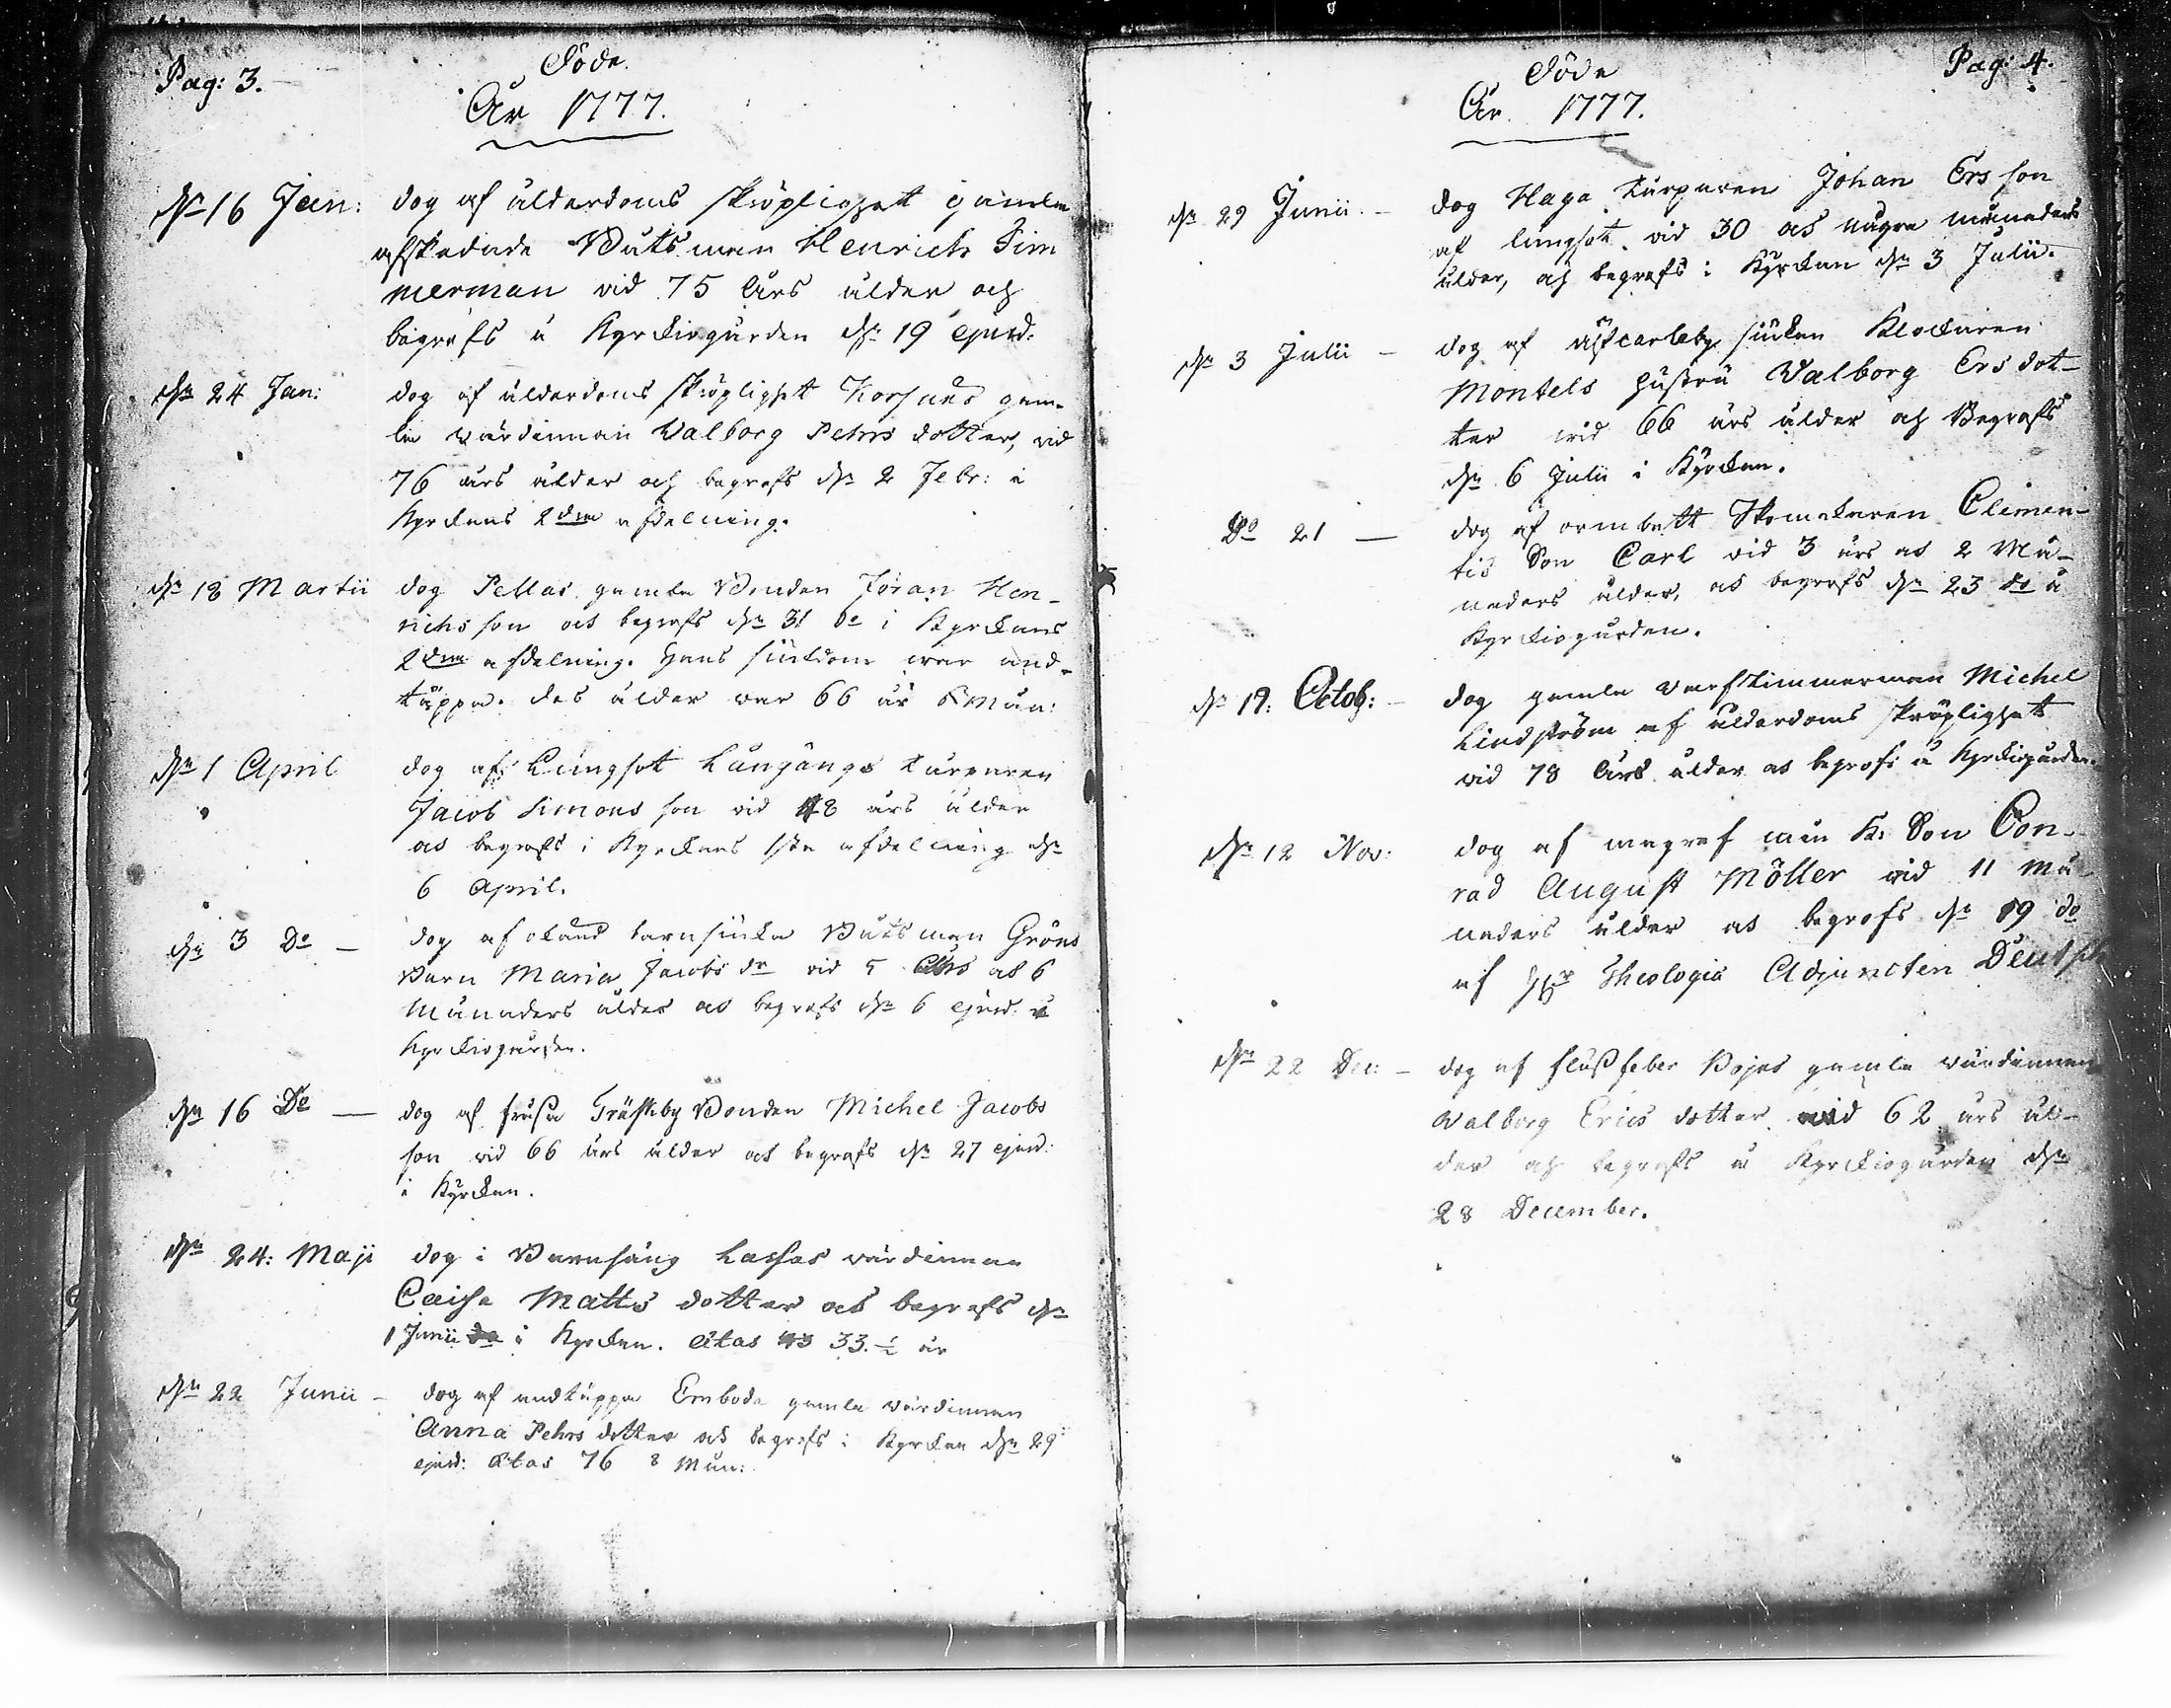 Pag: 3.
Döde.
År 1777.
dn 16 Jan: dog af ålderdoms skröplighet gamla
afskedade Båtsman Henrich Tim
merman vid 75 Års ålder och
begrofs å Kyrckiogården dn 19 ejusd:
dn 24 Jan: dog af ålderdoms skröplighet Korsnäs gam-
la värdinnan Walborg Pehrs dotter, vid
76 års ålder och begrofs dn 2 Febr: i
Kyrckans 2dra afdelning.
dn 18 Martii dog Pellas gamla Bonden Jöran Hen-
richs son och begrofs dn 31 do i Kyrckans
2dra afdelning. Hans siukdom war and-
täppa. des ålder war 66 år Mån:
dn 1 April dog af Lungsot Långängs Torparen
Jacob Simons son vid 48 års ålder
och begrofs i Kyrckans 1sta afdelning dn
6 April.
dn 3 Do — dog af okänd barnsiuka Båtsman Gröns
Barn Maria Jacobs dr vid 5 Års och 6
Månaders ålder och begrofs dn 6 ejusd: å
Kyrckiogården.
dn 16 Do — dog af frussa Träskby Bonden Michel Jacobs
son vid 66 års ålder och begrofs dn 27 ejusd:
i Kyrckan.
dn 24: Maji dog i Barnsäng Lassas värdinnan
Caisa Matts dotter och begrofs dn
1 Junii i Kyrckan. Ætas 33. ½ år
dn 22 Junii - dog af andtäppa Embods gamla värdinnan
Anna Pehrs dotter och begrofs i Kyrckan dn 29
ejusd: Ætas 76 8 Mån:
Pag: 4.
Döde
År 1777.
dn 29 Junii. - dog Haga Torparen Johan Ers son
af lungsot vid 30 och några månaders
ålder, och begrofs i Kyrckan dn 3 Julii.
dn 3 Julii - dog af siukan Klockaren
Montels hustru Walborg Ers dot-
ter vid 66 års ålder och Begrofs
dn 6 Julii i Kyrckan.
Do 21 — dog af ormbett Skomakaren Clemen-
tis Son Carl vid 3 års och 2 Må-
naders ålder, och begrofs dn 23 do å
Kyrckiogården.
dn 19: Octob: - dog gamla varfstimmerman Michel
Lindström af ålderdoms skröplighet
vid 78 Års ålder och begrofs å Kyrckiogården.
dn 12 Nov: dog af min K: Son Con-
rad August Möller vid 11 Må-
naders ålder och begrofs dn 19 do
af Hr Theologiæ Adjuncten Deutsch
dn 22 Dec: - dog af flussfeber Bojas gamla värdinnan
Walborg Erics dotter vid 62 års ål-
der och begrofs å Kyrckiogården dn
28 December.